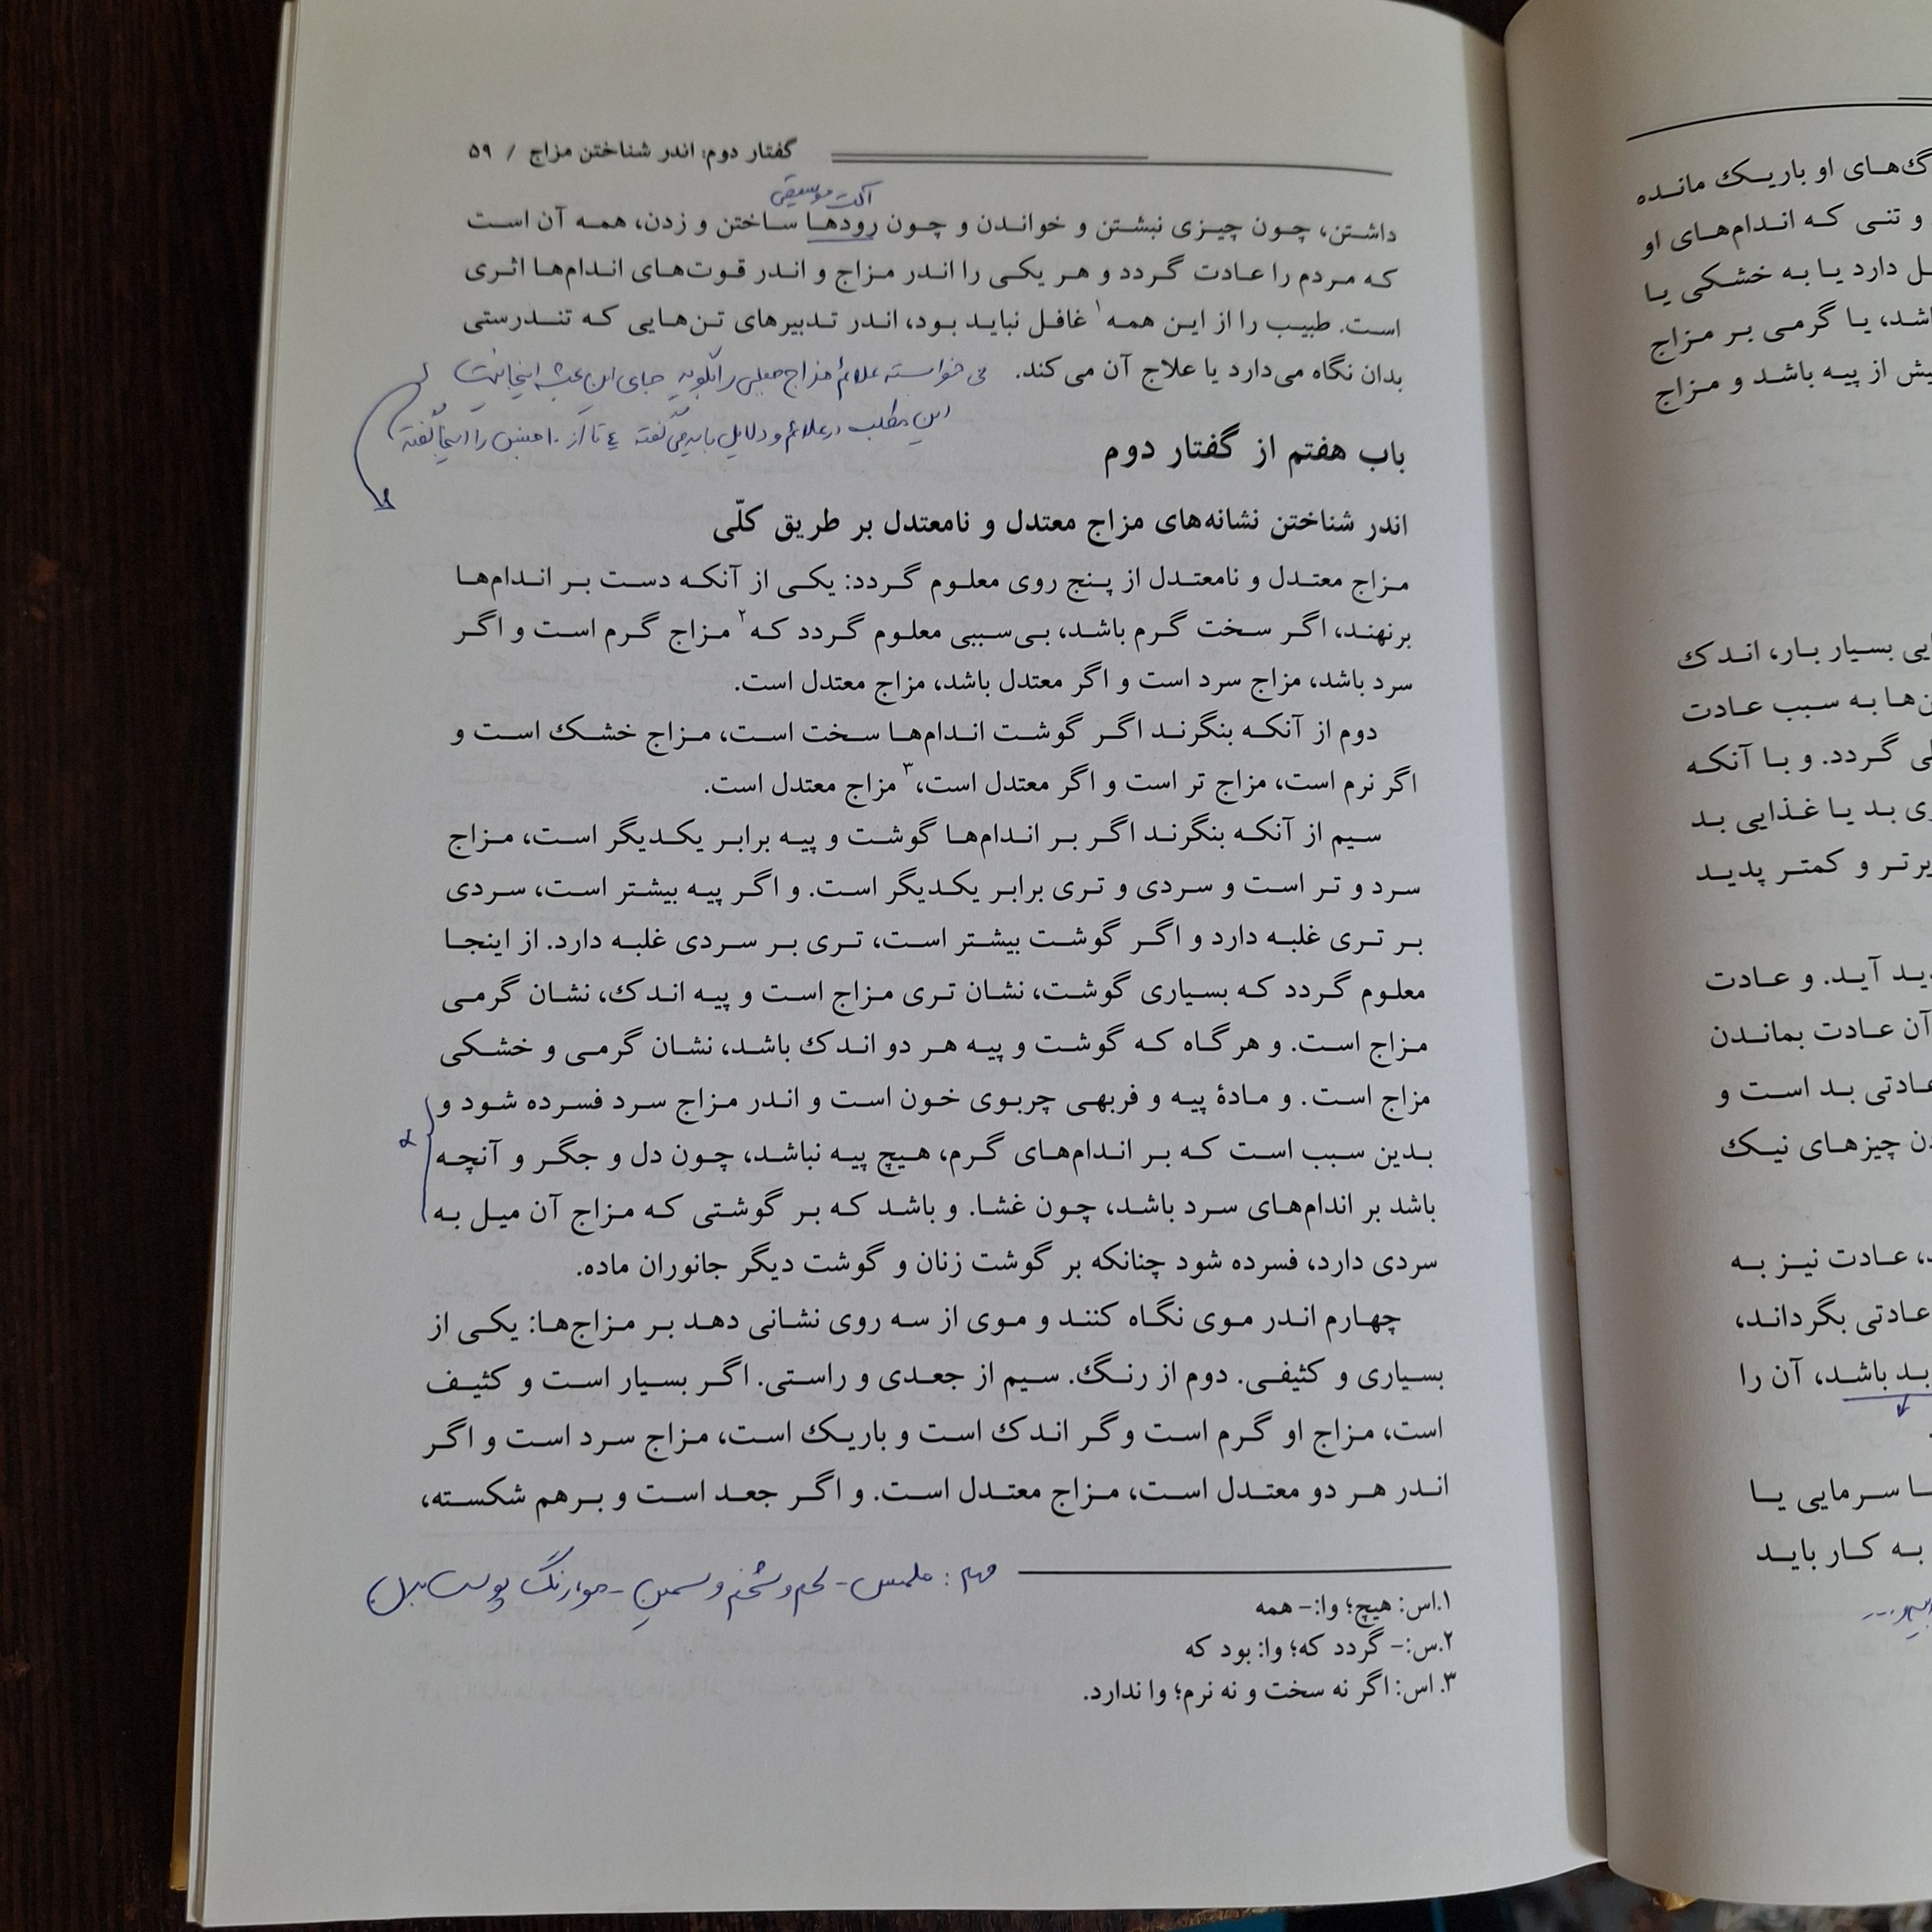 گفتار دوم: اندر شناختن مزاج / ۵۹
آلت موسیقی
داشتن، چون چیزی نبشتن و خواندن و چون رودها ساختن و زدن، همه آن است
که مردم را عادت گردد و هر یکی را اندر مزاج و اندر قوت‌های اندام‌ها اثری
است. طبیب را از این همه۱ غافل نباید بود، اندر تدبیرهای تن‌هایی که تندرستی
بدان نگاه می‌دارد یا علاج آن می‌کند.
می خواسته علائم مزاج جبلی را بگوید جای این بحث اینجا نیست
این مطلب در علائم و دلایل باید می گفته ٤ تا از ۱۰ جنس را اینجا گفته
باب هفتم از گفتار دوم
اندر شناختن نشانه‌های مزاج معتدل و نامعتدل بر طریق کلّی
مزاج معتدل و نامعتدل از پنج روی معلوم گردد: یکی از آنکه دست بر اندام‌ها
برنهند، اگر سخت گرم باشد، بی‌سببی معلوم گردد که۲ مزاج گرم است و اگر
سرد باشد، مزاج سرد است و اگر معتدل باشد، مزاج معتدل است.
دوم از آنکه بنگرند اگر گوشت اندام‌ها سخت است، مزاج خشک است و
اگر نرم است، مزاج تر است و اگر معتدل است،۳ مزاج معتدل است.
سیم از آنکه بنگرند اگر بر اندام‌ها گوشت و پیه برابر یکدیگر است، مزاج
سرد و تر است و سردی و تری برابر یکدیگر است. و اگر پیه بیشتر است، سردی
بر تری غلبه دارد و اگر گوشت بیشتر است، تری بر سردی غلبه دارد. از اینجا
معلوم گردد که بسیاری گوشت، نشان تری مزاج است و پیه اندک، نشان گرمی
مزاج است. و هرگاه که گوشت و پیه هر دو اندک باشد، نشان گرمی و خشکی
مزاج است. و مادهٔ پیه و فربهی چربوی خون است و اندر مزاج سرد فسرده شود و
بدین سبب است که بر اندام‌های گرم، هیچ پیه نباشد، چون دل و جگر و آنچه
باشد بر اندام‌های سرد باشد، چون غشا. و باشد که بر گوشتی که مزاج آن میل به
سردی دارد، فسرده شود چنانکه بر گوشت زنان و گوشت دیگر جانوران ماده.
چهارم اندر موی نگاه کنند و موی از سه روی نشانی دهد بر مزاج‌ها: یکی از
بسیاری و کثیفی. دوم از رنگ. سیم از جعدی و راستی. اگر بسیار است و کثیف
است، مزاج او گرم است و گر اندک است و باریک است، مزاج سرد است و اگر
اندر هر دو معتدل است، مزاج معتدل است. و اگر جعد است و برهم شکسته،
مهم: ملمس - لحم و شحم و سمین - مو، رنگ پوست بدن
۱.اس: هیچ؛ وا:- همه
۲.س:- گردد که؛ وا: بود که
۳. اس: اگر نه سخت و نه نرم؛ وا ندارد.
گ‌های او باریک مانده
و تنی که اندام‌های او
ل دارد یا به خشکی یا
اشد، یا گرمی بر مزاج
یش از پیه باشد و مزاج
یی بسیار بار، اندک
ن‌ها به سبب عادت
لی گردد. و با آنکه
ری بد یا غذایی بد
یرتر و کمتر پدید
ید آید. و عادت
آن عادت بماندن
عادتی بد است و
دن چیزهای نیک
د، عادت نیز به
عادتی بگرداند،
بد باشد، آن را
ا سرمایی یا
به کار باید